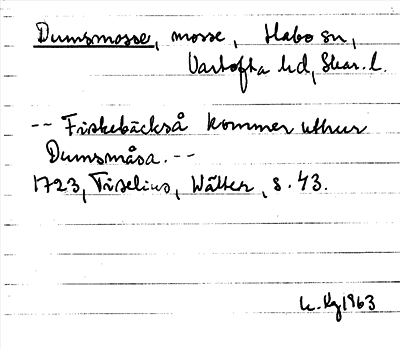 Dumsmosse, mosse, Habo sn,
Vartofta hd, Skar. l.
-- Fiskebäckså kommer uthur
Dumsmåsa. --
1723, Tiselius, Wätter, s. 43.
1963